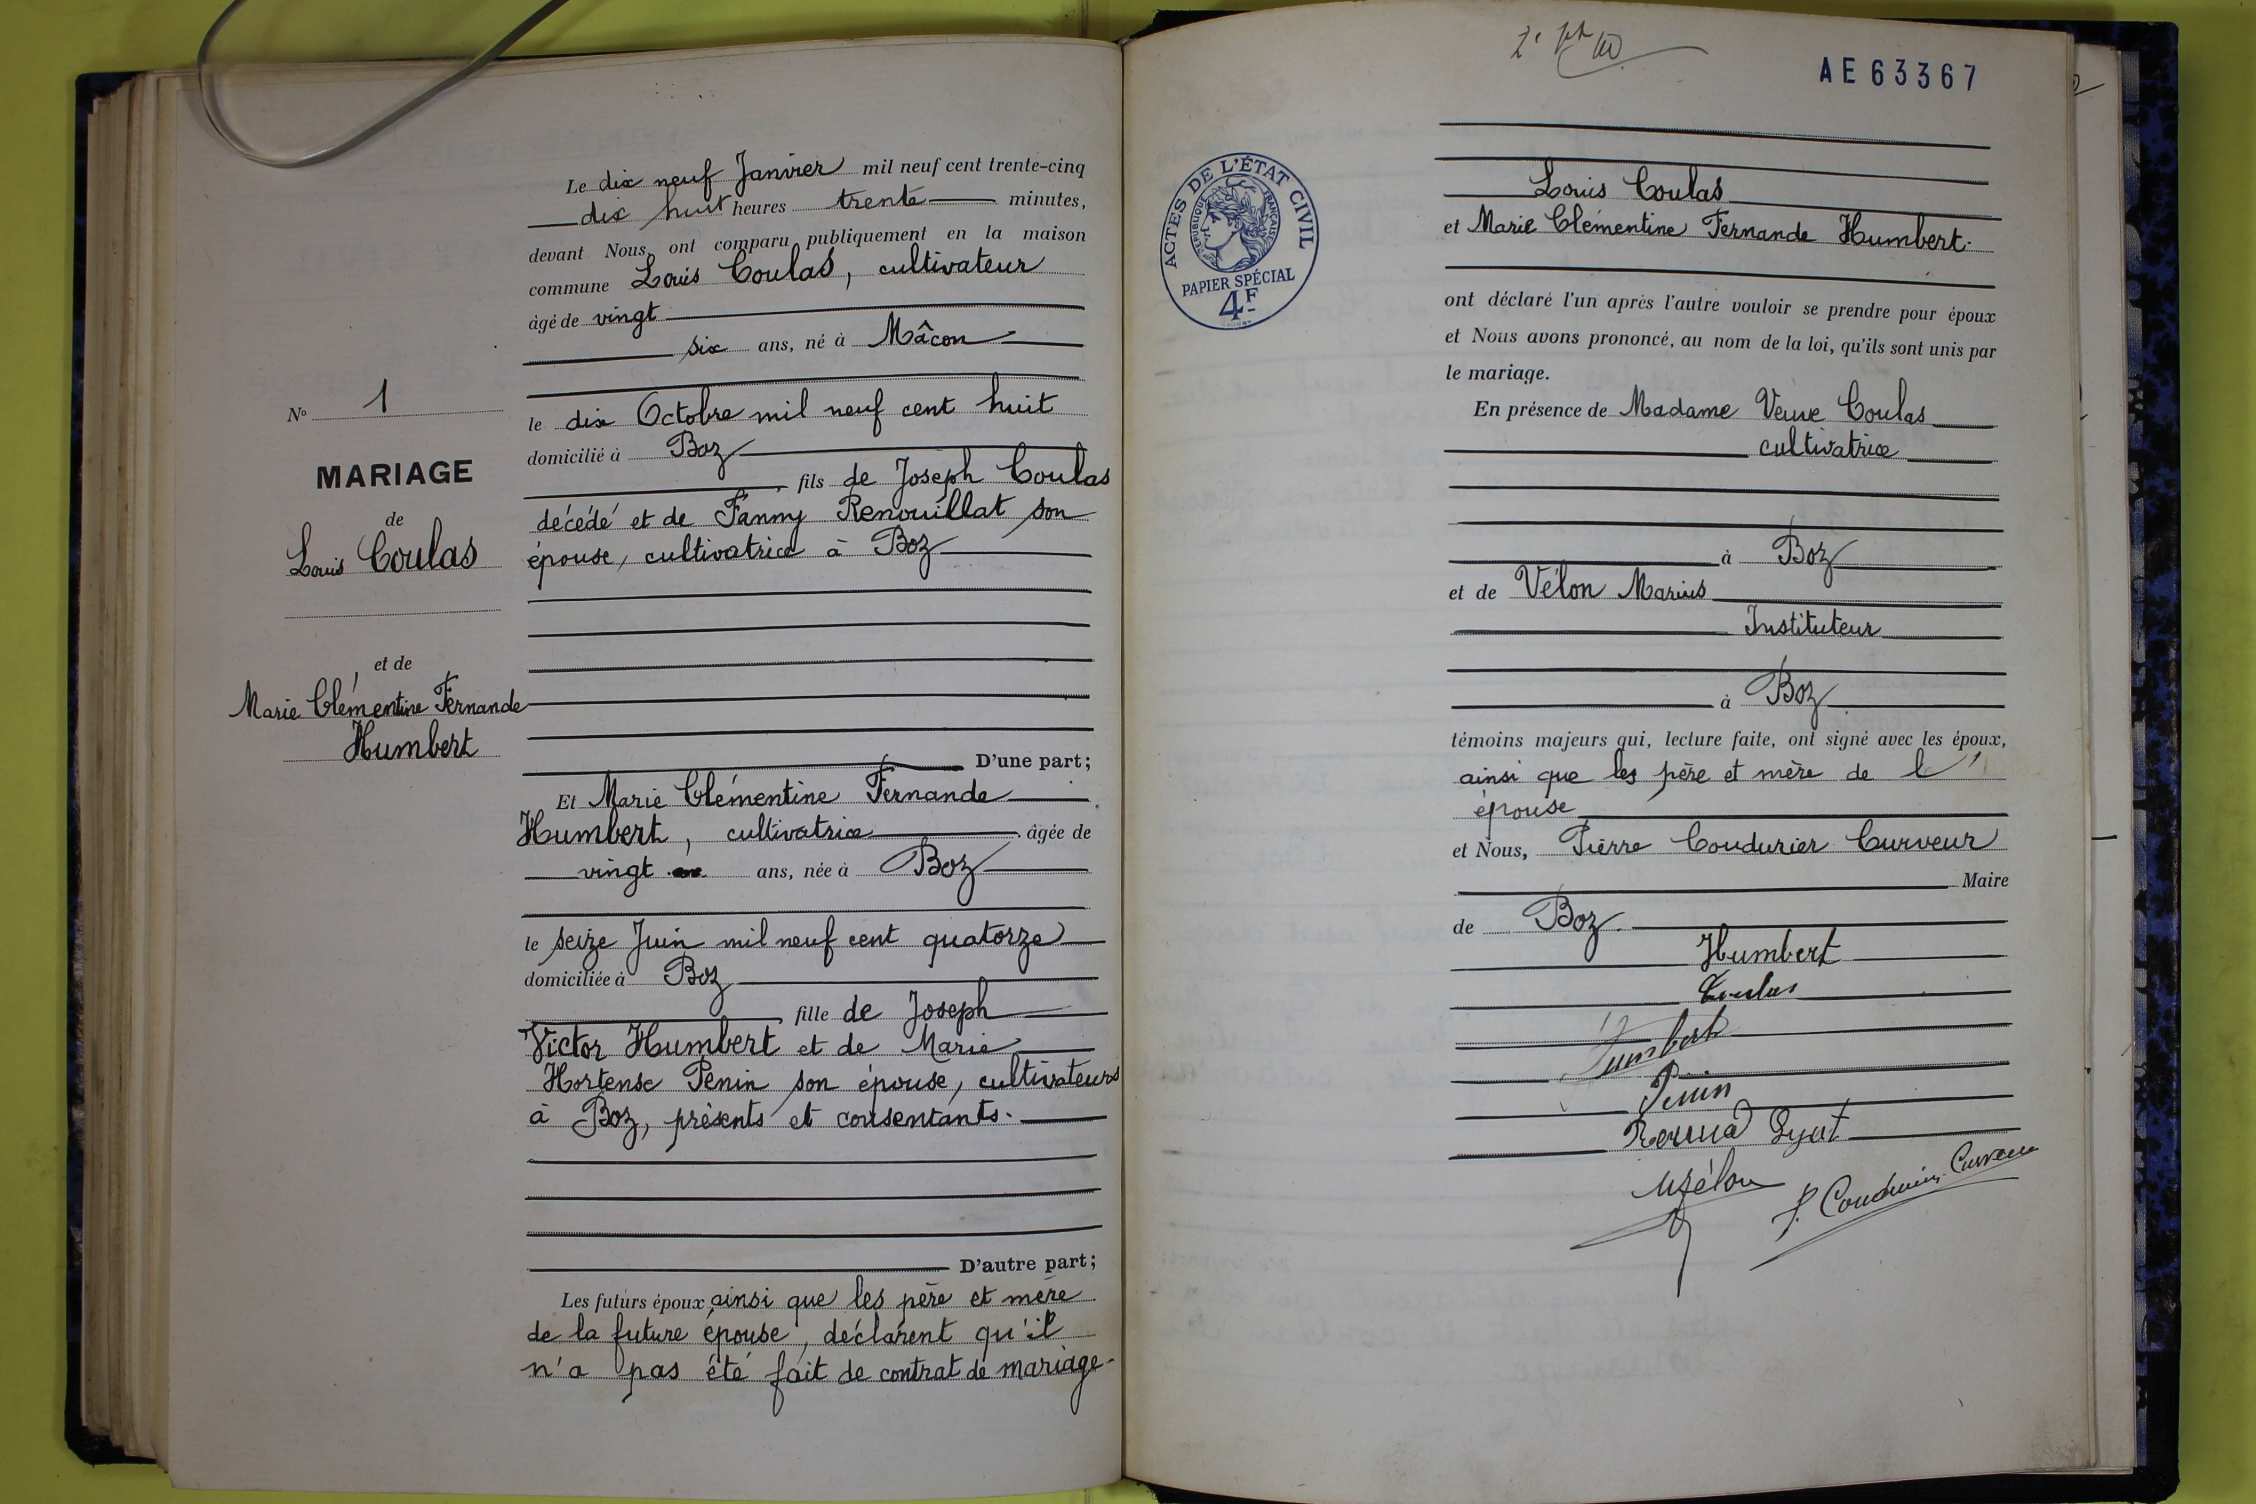 Le dix neuf Janvier mil neuf cent trente-cinq
dix huit heures trente minutes,
devant Nous, ont comparu publiquement en la maison
commune Louis Coulas, cultivateur
âgé de vingt
six ans, né à Mâcon
le dix Octobre mil neuf cent huit
domicilié à Boz
fils de Joseph Coulas
décédé et de Fanny Renouillat son
épouse, cultivatrice à Boz
D'une part;
Et Marie Clémentine Fernande
Humbert, cultivatrice âgée de
vingt ans, née à Boz
le seize Juin mil neuf cent quatorze
domiciliée à Boz
fille de Joseph
Victor Humbert et de Marie
Hortense Penin son épouse, cultivateurs
à Boz, présents et consentants.
D'autre part;
Les futurs époux ainsi que les père et mère
de la future épouse, déclarent qu'il
n'a pas été fait de contrat de mariage.
N° 1
MARIAGE
de
Louis Coulas
et de
Marie Clémentine Fernande
Humbert
AE63367
ACTES DE L'ÉTAT CIVIL
RÉPUBLIQUE FRANÇAISE
PAPIER SPÉCIAL
4F
Louis Coulas
et Marie Clémentine Fernande Humbert.
ont déclaré l'un après l'autre vouloir se prendre pour époux
et Nous avons prononcé, au nom de la loi, qu'ils sont unis par
le mariage.
En présence de Madame Veuve Coulas
cultivatrice
à Boz
et de Vélon Marius
Instituteur
à Boz
témoins majeurs qui, lecture faite, ont signé avec les époux,
ainsi que les père et mère de l'
épouse
et Nous, Pierre Coudurier Curveur
Maire
de Boz.
Humbert
Coulas
Humbert
Penin
MVélon
P. Coudurier Curveur